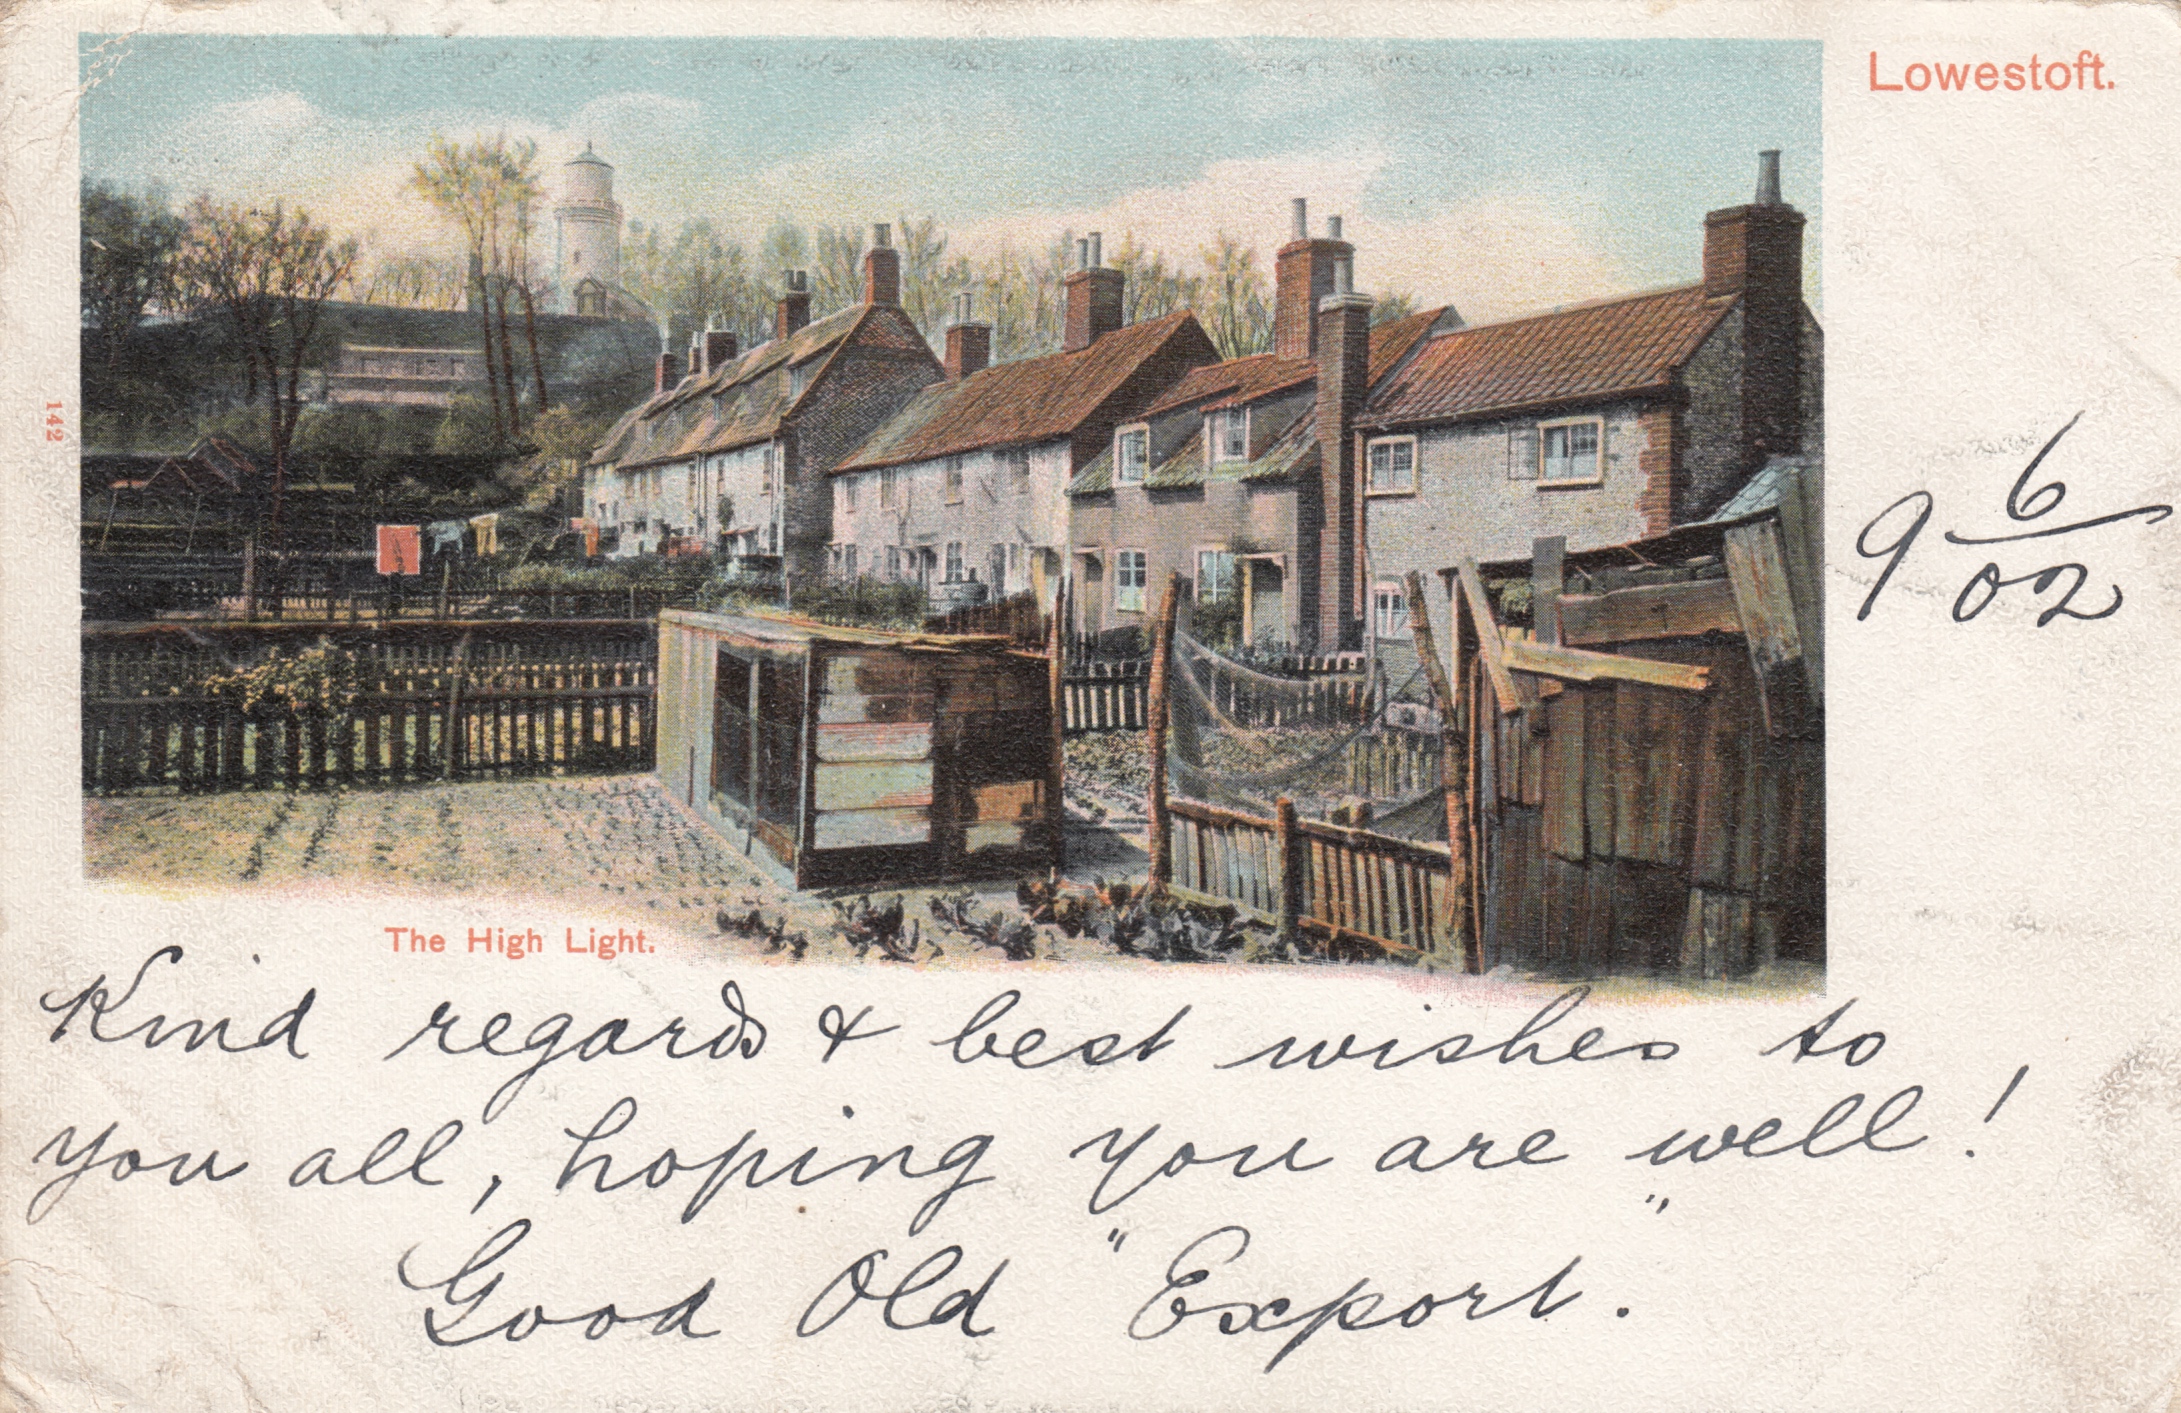 Lowestoft.
142
9 6/02
The High Light.
Kind regards & best wishes to
you all, hoping you are well!
Good Old "Export."